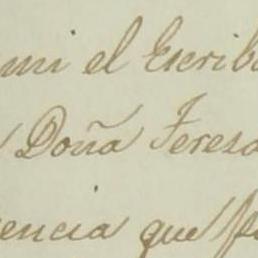 mi el Escriba
Doña Teresa
encia que p